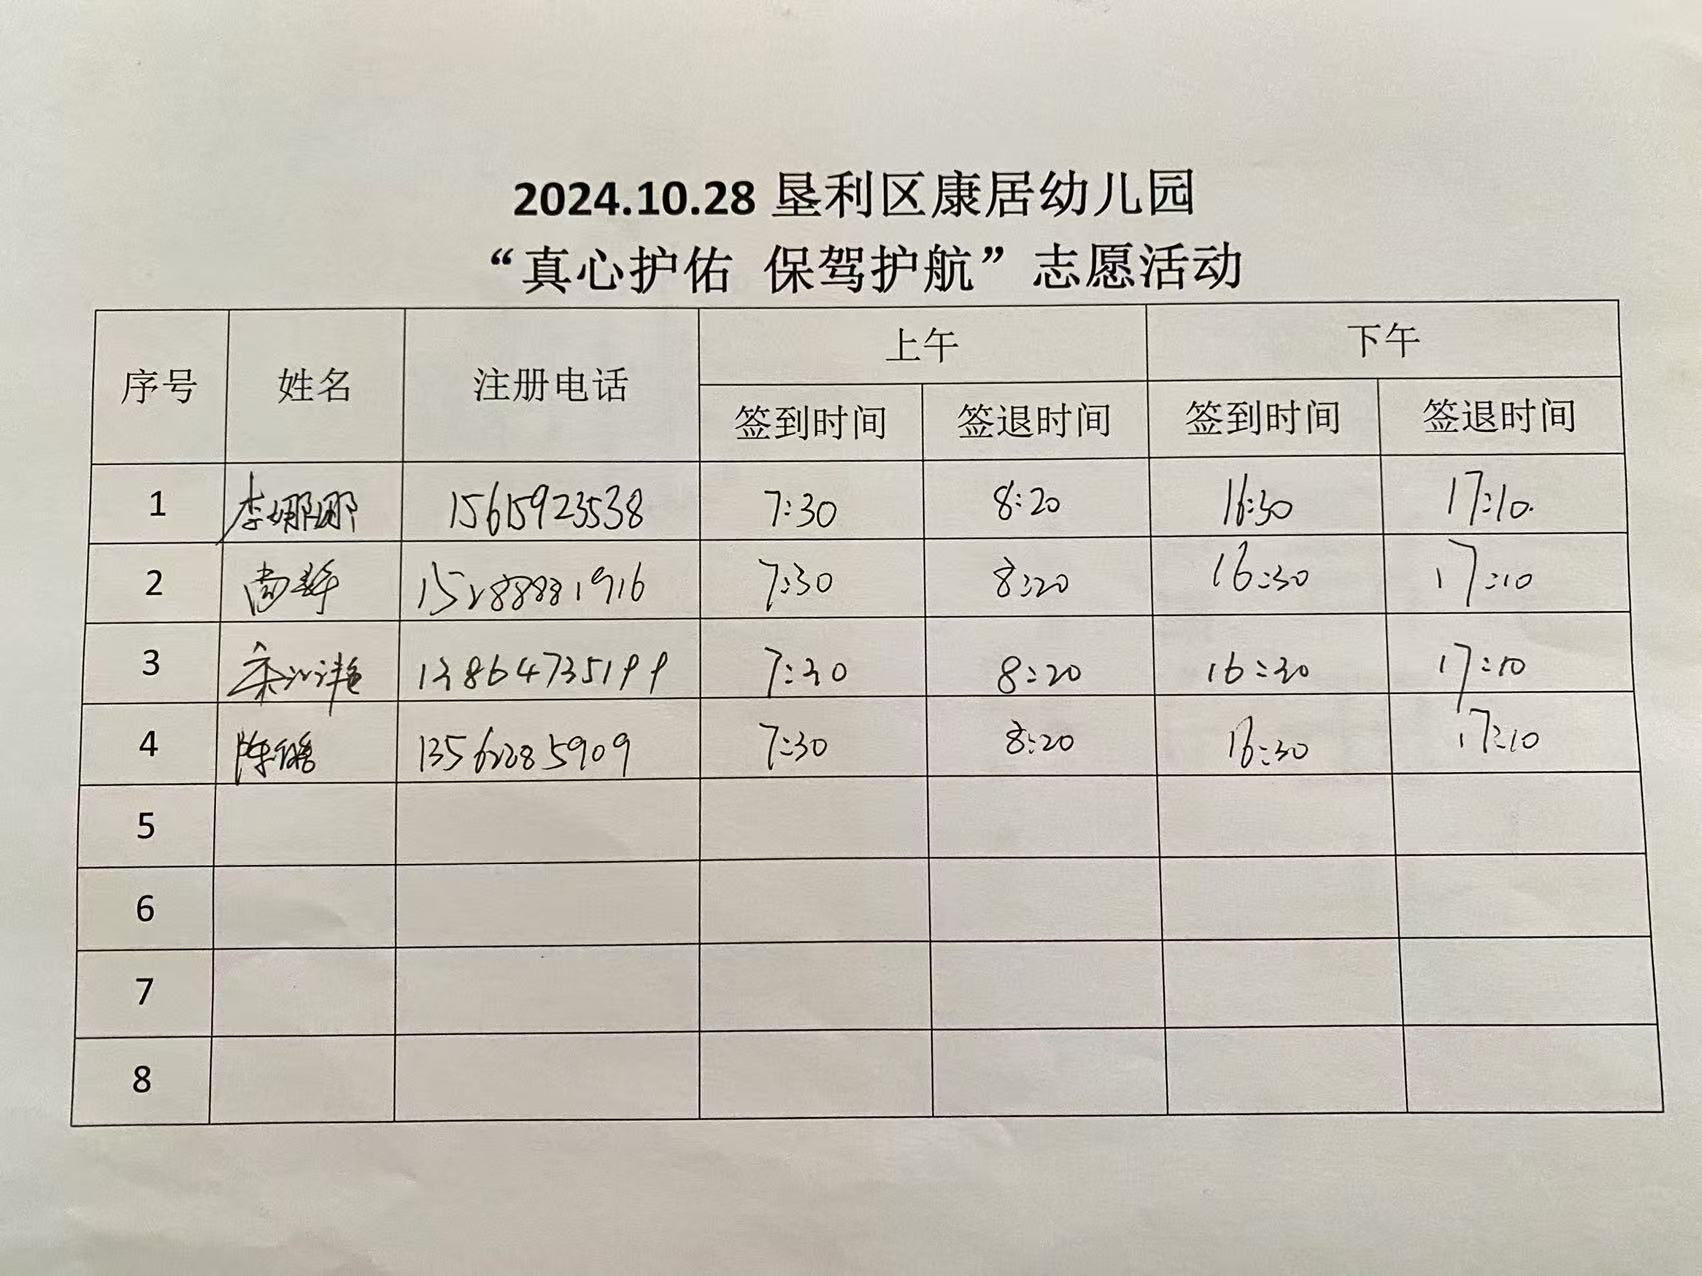 2024.10.28 垦利区康居幼儿园
“真心护佑 保驾护航”志愿活动
序号 姓名 注册电话 上午 下午
签到时间 签退时间 签到时间 签退时间
1 李娜娜 15615923538 7:30 8:20 16:30 17:10
2 尚 15288881916 7:30 8:20 16:30 17:10
3 13864735199 7:30 8:20 16:30 17:10
4 陈 13562285909 7:30 8:20 16:30 17:10
5
6
7
8